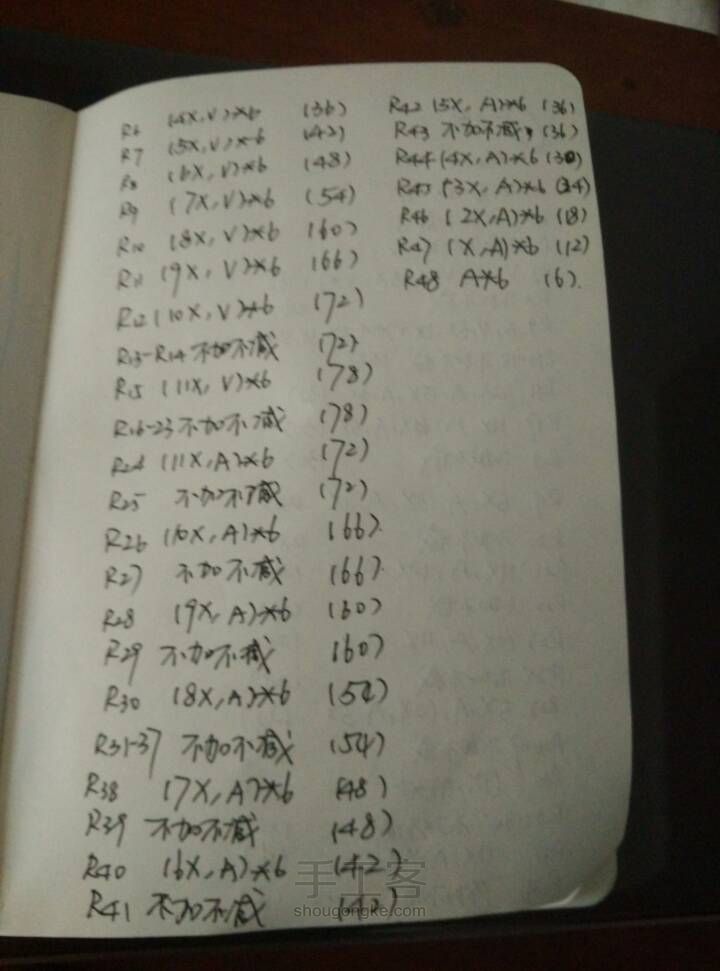 R6 (4X,V)*6 (36)
R7 (5X,V)*6 (42)
R8 (6X,V)*6 (48)
R9 (7X,V)*6 (54)
R10 (8X,V)*6 (60)
R11 (9X,V)*6 (66)
R12 (10X,V)*6 (72)
R13-R14 不加不减 (72)
R15 (11X,V)*6 (78)
R16-23 不加不减 (78)
R24 (11X,A)*6 (72)
R25 不加不减 (72)
R26 (10X,A)*6 (66)
R27 不加不减 (66)
R28 (9X,A)*6 (60)
R29 不加不减 (60)
R30 (8X,A)*6 (54)
R31-37 不加不减 (54)
R38 (7X,A)*6 (48)
R39 不加不减 (48)
R40 (6X,A)*6 (42)
R41 不加不减 (42)
R42 (5X,A)*6 (36)
R43 不加不减, (36)
R44 (4X,A)*6 (30)
R45 (3X,A)*6 (24)
R46 (2X,A)*6 (18)
R47 (X,A)*6 (12)
R48 A*6 (6)
手工客
shougongke.com